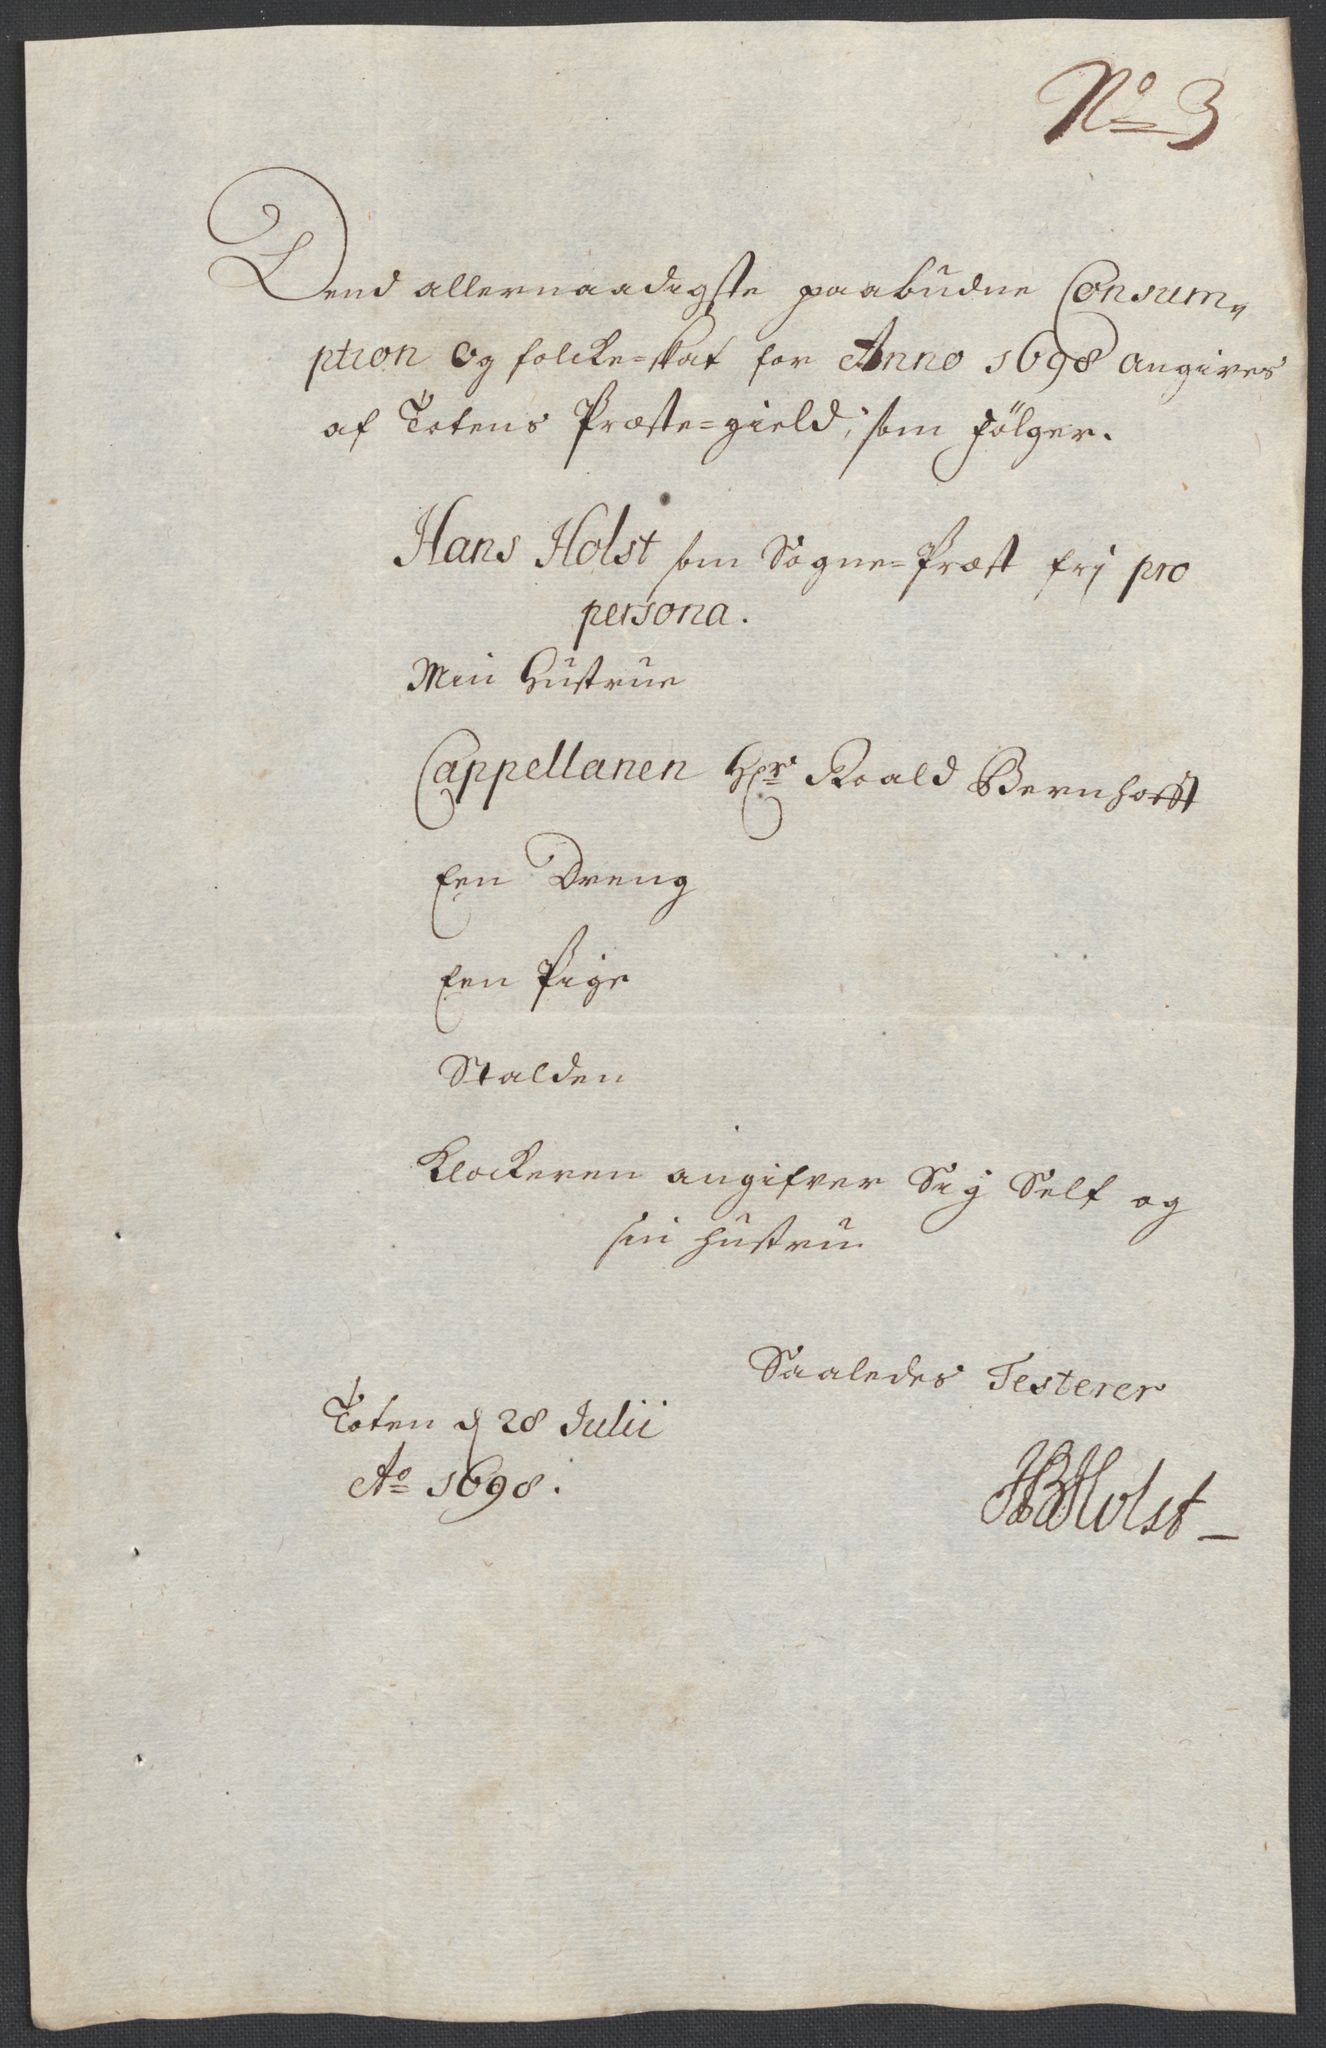 No 3
Dend allernaadigste paabudne Consum-
ption og folcke=skat for Anno 1698 angives
af Totens Præste=gield, som følger.
Hans Holst som Sogne=Præst frj pro
persona.
Min Hustrue
Cappellanen Hr Roald Bernhofft
Een Dreng
Een Pige
Stalden
Klockeren angifver Sig Self og
sin hustru
Saaledes Testerer
Toten d 28 Julii
Ao 1698.
HBHolst